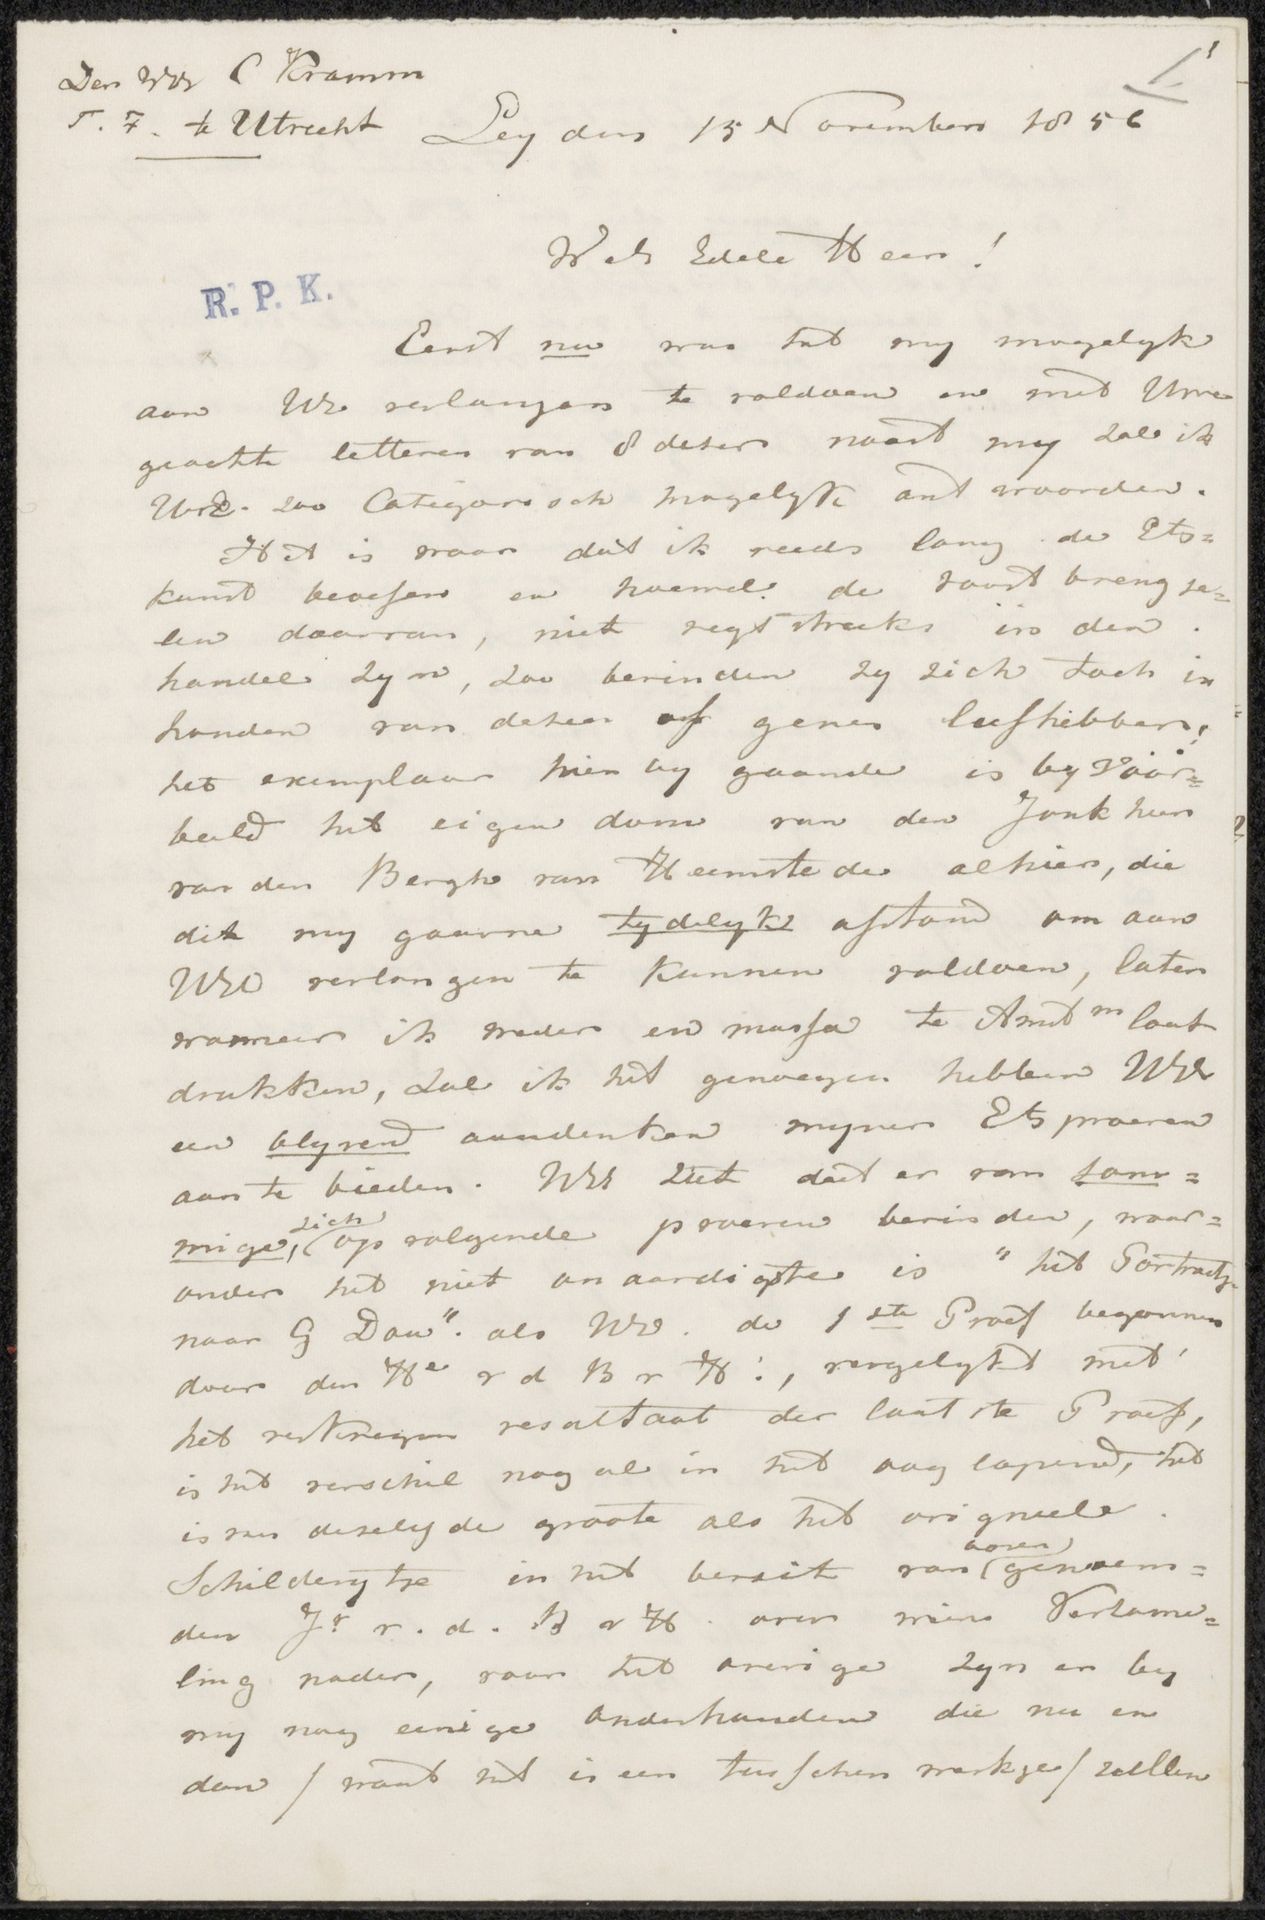 Den WE C Kramm
T. Z. te Utrecht
Leyden 15 November 1856
1
Wel Edele Heer!
R. P. K.
Eerst nu was het my mogelyk
aan WE verlangen te voldoen en met Uwe
geachte letteren van 8 dezer naast my zal ik
UwE. zoo Categorisch mogelyk antwoorden.
Het is waar dat ik reeds lang de Ets=
kunst beoefen en hoewel de voortbrengse=
len daarvan, niet regtstreeks in den
handel zyn, zoo bevinden zy zich toch in
handen van dezen of genen liefhebber,
het exemplaar hier by gaande is by voor=
beeld het eigendom van den Jonkheer
van den Bergh van Heemstede alhier, die
dit my gaarne tydelyk afstond om aan
WED verlangen te kunnen voldoen, later
wanneer ik weder en massa te Amstm laat
drukken, zal ik het genoegen hebben WE
een blyvend aandenken myner Etsproeven
aan te bieden. WE ziet dat er van som=
mige, zich opvolgende proeven bevinden, waar=
onder het niet onaardigste is "het Portraitje
naar G Dou". als WE. de 1ste Proef begonnen
door den He v d B v H:, vergelykt met
het verkregen resultaat der laatste Proef,
is het verschil nog al in het oog lopend, het
is van dezelfde groote als het origineele
Schilderytje in het bezit van boven genoem=
den Jr v. d. B v H. over mine Verzame=
ling nader, voor het overige zyn er by
my nog eenige onderhanden die nu en
dan / want het is een tusschen werkje / zullen